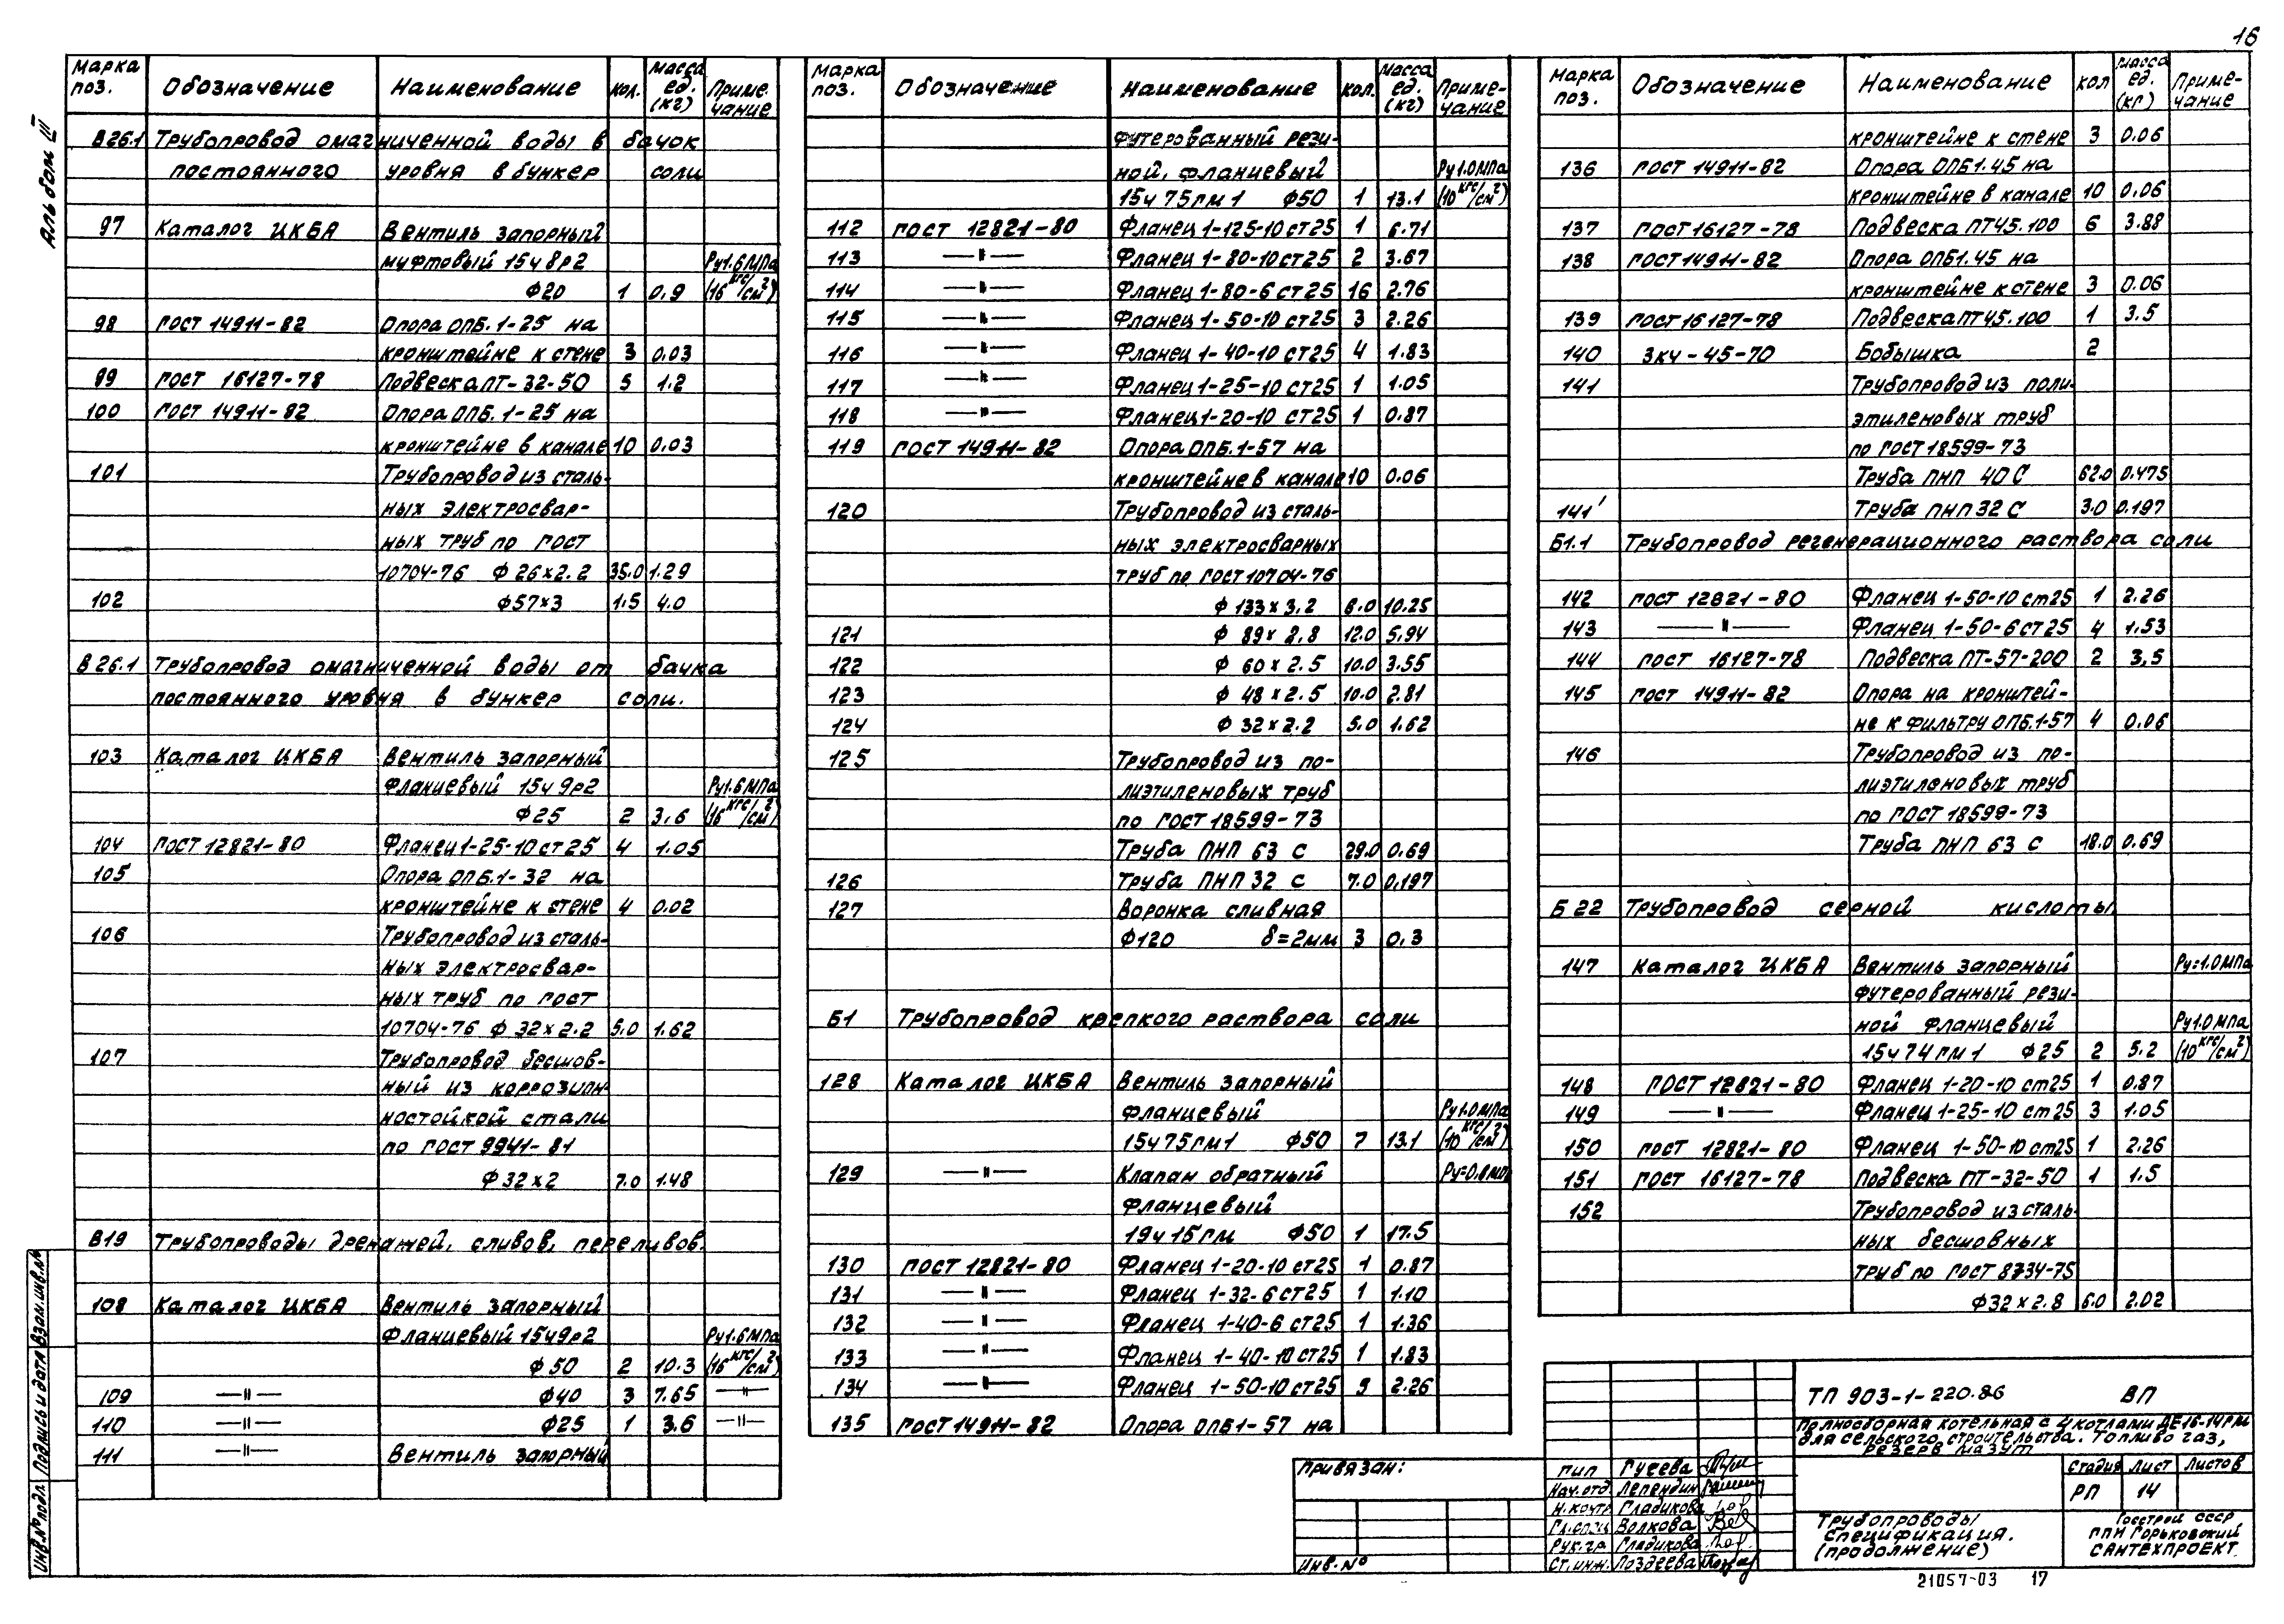 16
Альбом III
Марка поз. Обозначение Наименование кол. Масса ед. (кг) Приме- чание
В26.1 Трубопровод омагниченной воды в бачок
постоянного уровня в бункер соли
97 Каталог ЦКБА Вентиль запорный
муфтовый 15ч8р2 Ру1.6МПа
Ф20 1 0,9 (16 кгс/см²)
98 ГОСТ 14911-82 Опора ОПБ.1-25 на
кронштейне к стене 3 0.03
99 ГОСТ 16127-78 Подвеска ПТ-32-50 5 1.2
100 ГОСТ 14911-82 Опора ОПБ.1-25 на
кронштейне в канале 10 0.03
101 Трубопровод из сталь-
ных электросвар-
ных труб по ГОСТ
10704-76 Ф 26×2.2 35.0 1.29
102 Ф57×3 1.5 4.0
В 26.1 Трубопровод омагниченной воды от бачка
постоянного уровня в бункер соли.
103 Каталог ЦКБА Вентиль запорный
фланцевый 15ч9р2 Ру1.6МПа
Ф25 2 3,6 (16 кгс/см²)
104 ГОСТ 12821-80 Фланец 1-25-10 ст25 4 1.05
105 Опора ОПБ.1-32 на
кронштейне к стене 4 0.02
106 Трубопровод из сталь-
ных электросвар-
ных труб по ГОСТ
10704-76 Ф 32×2.2 5.0 1.62
107 Трубопровод бесшов-
ный из коррозион-
ностойкой стали
по ГОСТ 9941-81
Ф 32×2 7.0 1.48
В19 Трубопроводы дренажей, сливов, переливов.
108 Каталог ЦКБА Вентиль запорный
фланцевый 15ч9р2 Ру1.6МПа
Ф50 2 10.3 (16 кгс/см²)
109 —"— Ф40 3 7.65 —"—
110 —"— Ф25 1 3.6 —"—
111 —"— Вентиль запорный
Марка поз. Обозначение Наименование кол. Масса ед. (кг) Приме- чание
футерованный рези-
ной, фланцевый Ру1.0МПа
15ч75гм1 Ф50 1 13.1 (10 кгс/см²)
112 ГОСТ 12821-80 Фланец 1-125-10 ст25 1 6.71
113 —"— Фланец 1-80-10 ст25 2 3.67
114 —"— Фланец 1-80-6 ст25 16 2.76
115 —"— Фланец 1-50-10 ст25 3 2.26
116 —"— Фланец 1-40-10 ст25 4 1.83
117 —"— Фланец 1-25-10 ст25 1 1.05
118 —"— Фланец 1-20-10 ст25 1 0.87
119 ГОСТ 14911-82 Опора ОПБ.1-57 на
кронштейне в канале 10 0.06
120 Трубопровод из сталь-
ных электросварных
труб по ГОСТ 10704-76
Ф 133×3.2 6.0 10.25
121 Ф 89×2.8 12.0 5.94
122 Ф 60×2.5 10.0 3.55
123 Ф 48×2.5 10.0 2.81
124 Ф 32×2.2 5.0 1.62
125 Трубопровод из по-
лиэтиленовых труб
по ГОСТ 18599-73
Труба ПНП 63 С 29.0 0.69
126 Труба ПНП 32 С 7.0 0.197
127 Воронка сливная
Ф120 δ=2мм 3 0.3
Б1 Трубопровод крепкого раствора соли
128 Каталог ЦКБА Вентиль запорный
фланцевый Ру1.0МПа
15ч75гм1 Ф50 7 13.1 (10 кгс/см²)
129 —"— Клапан обратный Ру=0.6мп
фланцевый
19ч15гм Ф50 1 17.5
130 ГОСТ 12821-80 Фланец 1-20-10 ст25 1 0.87
131 —"— Фланец 1-32-6 ст25 1 1.10
132 —"— Фланец 1-40-6 ст25 1 1.36
133 —"— Фланец 1-40-10 ст25 1 1.83
134 —"— Фланец 1-50-10 ст25 5 2.26
135 ГОСТ 14911-82 Опора ОПБ1-57 на
Марка поз. Обозначение Наименование кол Масса ед. (кг) Приме- чание
кронштейне к стене 3 0.06
136 ГОСТ 14911-82 Опора ОПБ1.45 на
кронштейне в канале 10 0.06
137 ГОСТ 16127-78 Подвеска ПТ45.100 6 3.88
138 ГОСТ 14911-82 Опора ОПБ1.45 на
кронштейне к стене 3 0.06
139 ГОСТ 16127-78 Подвеска ПТ45.100 1 3.5
140 ЗКЧ-45-70 Бобышка 2
141 Трубопровод из поли-
этиленовых труб
по ГОСТ 18599-73
Труба ПНП 40 С 62.0 0.475
141' Труба ПНП 32 С 3.0 0.197
Б1.1 Трубопровод регенерационного раствора соли
142 ГОСТ 12821-80 Фланец 1-50-10 ст25 1 2.26
143 —"— Фланец 1-50-6 ст25 4 1.53
144 ГОСТ 16127-78 Подвеска ПТ-57-200 2 3,5
145 ГОСТ 14911-82 Опора на кронштей-
не к фильтру ОПБ.1-57 4 0.06
146 Трубопровод из по-
лиэтиленовых труб
по ГОСТ 18599-73
Труба ПНП 63 С 18.0 0.69
Б 22 Трубопровод серной кислоты
147 Каталог ЦКБА Вентиль запорный Ру=1.0МПа
футерованный рези-
ной фланцевый Ру1.0МПа
15ч74гм1 Ф25 2 5.2 (10 кгс/см²)
148 ГОСТ 12821-80 Фланец 1-20-10 ст25 1 0.87
149 —"— Фланец 1-25-10 ст25 3 1.05
150 ГОСТ 12821-80 Фланец 1-50-10 ст25 1 2.26
151 ГОСТ 16127-78 Подвеска ПТ-32-50 1 1.5
152 Трубопровод из сталь-
ных бесшовных
труб по ГОСТ 8734-75
Ф32×2.8 6.0 2.02
ТП 903-1-220.86 ВП
Полносборная котельная с 4 котлами ДЕ16-14ГМ
для сельского строительства. Топливо газ,
резерв мазут
Привязан:
Инв.№
ГИП Гусева
Нач.отд. Лепендин
Н.контр Гладикова
Гл.спец Волкова
Рук.гр. Гладикова
Ст.инж. Поздеева
Стадия Лист Листов
РП 14
Трубопроводы
Спецификация.
(продолжение)
Госстрой СССР
ГПИ Горьковский
САНТЕХПРОЕКТ
21057-03 17
Инв.№подл. Подпись и дата Взам.инв.№